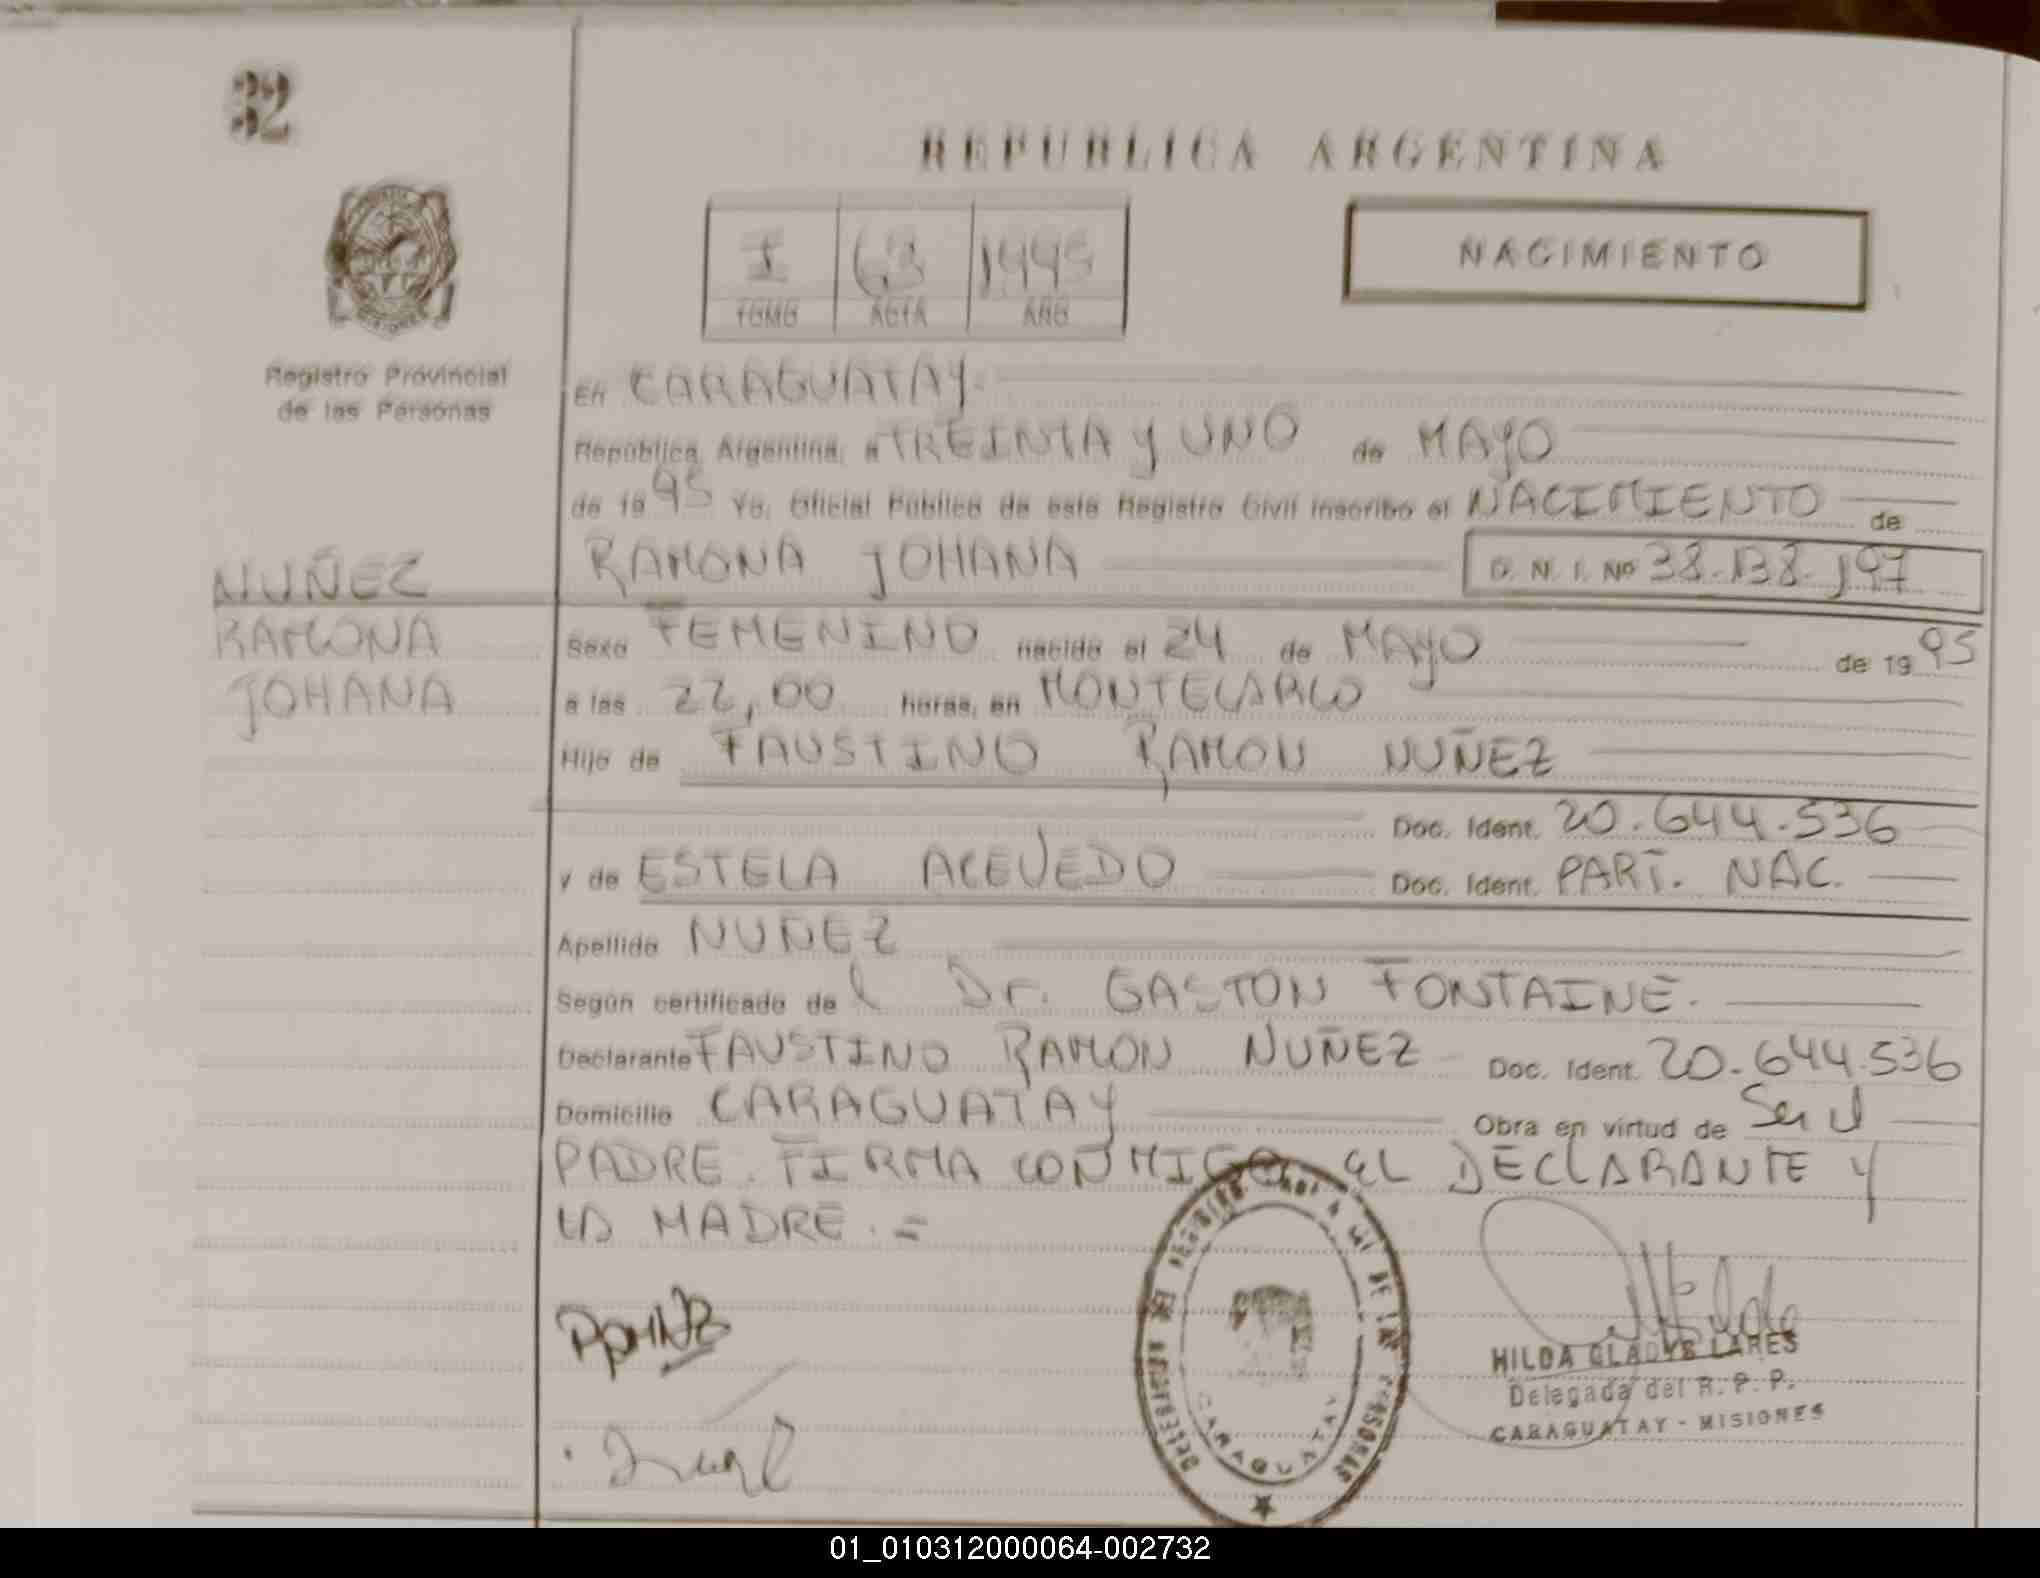 32
REPUBLICA ARGENTINA
I 63 1995
TOMO ACTA AÑO
NACIMIENTO
Registro Provincial
de las Personas
En CARAGUATAY
República Argentina, a TREINTA Y UNO de MAYO
de 1995 Yo, Oficial Público de este Registro Civil inscribo el NACIMIENTO de
RAMONA JOHANA D. N. I. Nº 38.138.197
NUÑEZ
RAMONA
JOHANA
Sexo FEMENINO nacido el 24 de MAYO de 1995
a las 22,00 horas, en MONTECARLO
Hijo de FAUSTINO RAMON NUÑEZ
Doc. Ident. 20.644.536
y de ESTELA ACEVEDO Doc. Ident. PART. NAC.
Apellido NUÑEZ
Según certificado del Dr. GASTON FONTAINE.
Declarante FAUSTINO RAMON NUÑEZ Doc. Ident. 20.644.536
Domicilio CARAGUATAY Obra en virtud de Ser el
PADRE. FIRMA CONMIGO EL DECLARANTE Y
LA MADRE. =
CARAGUATAY
HILDA GLADYS LARES
Delegada del R. P. P.
CARAGUATAY - MISIONES
01_010312000064-002732